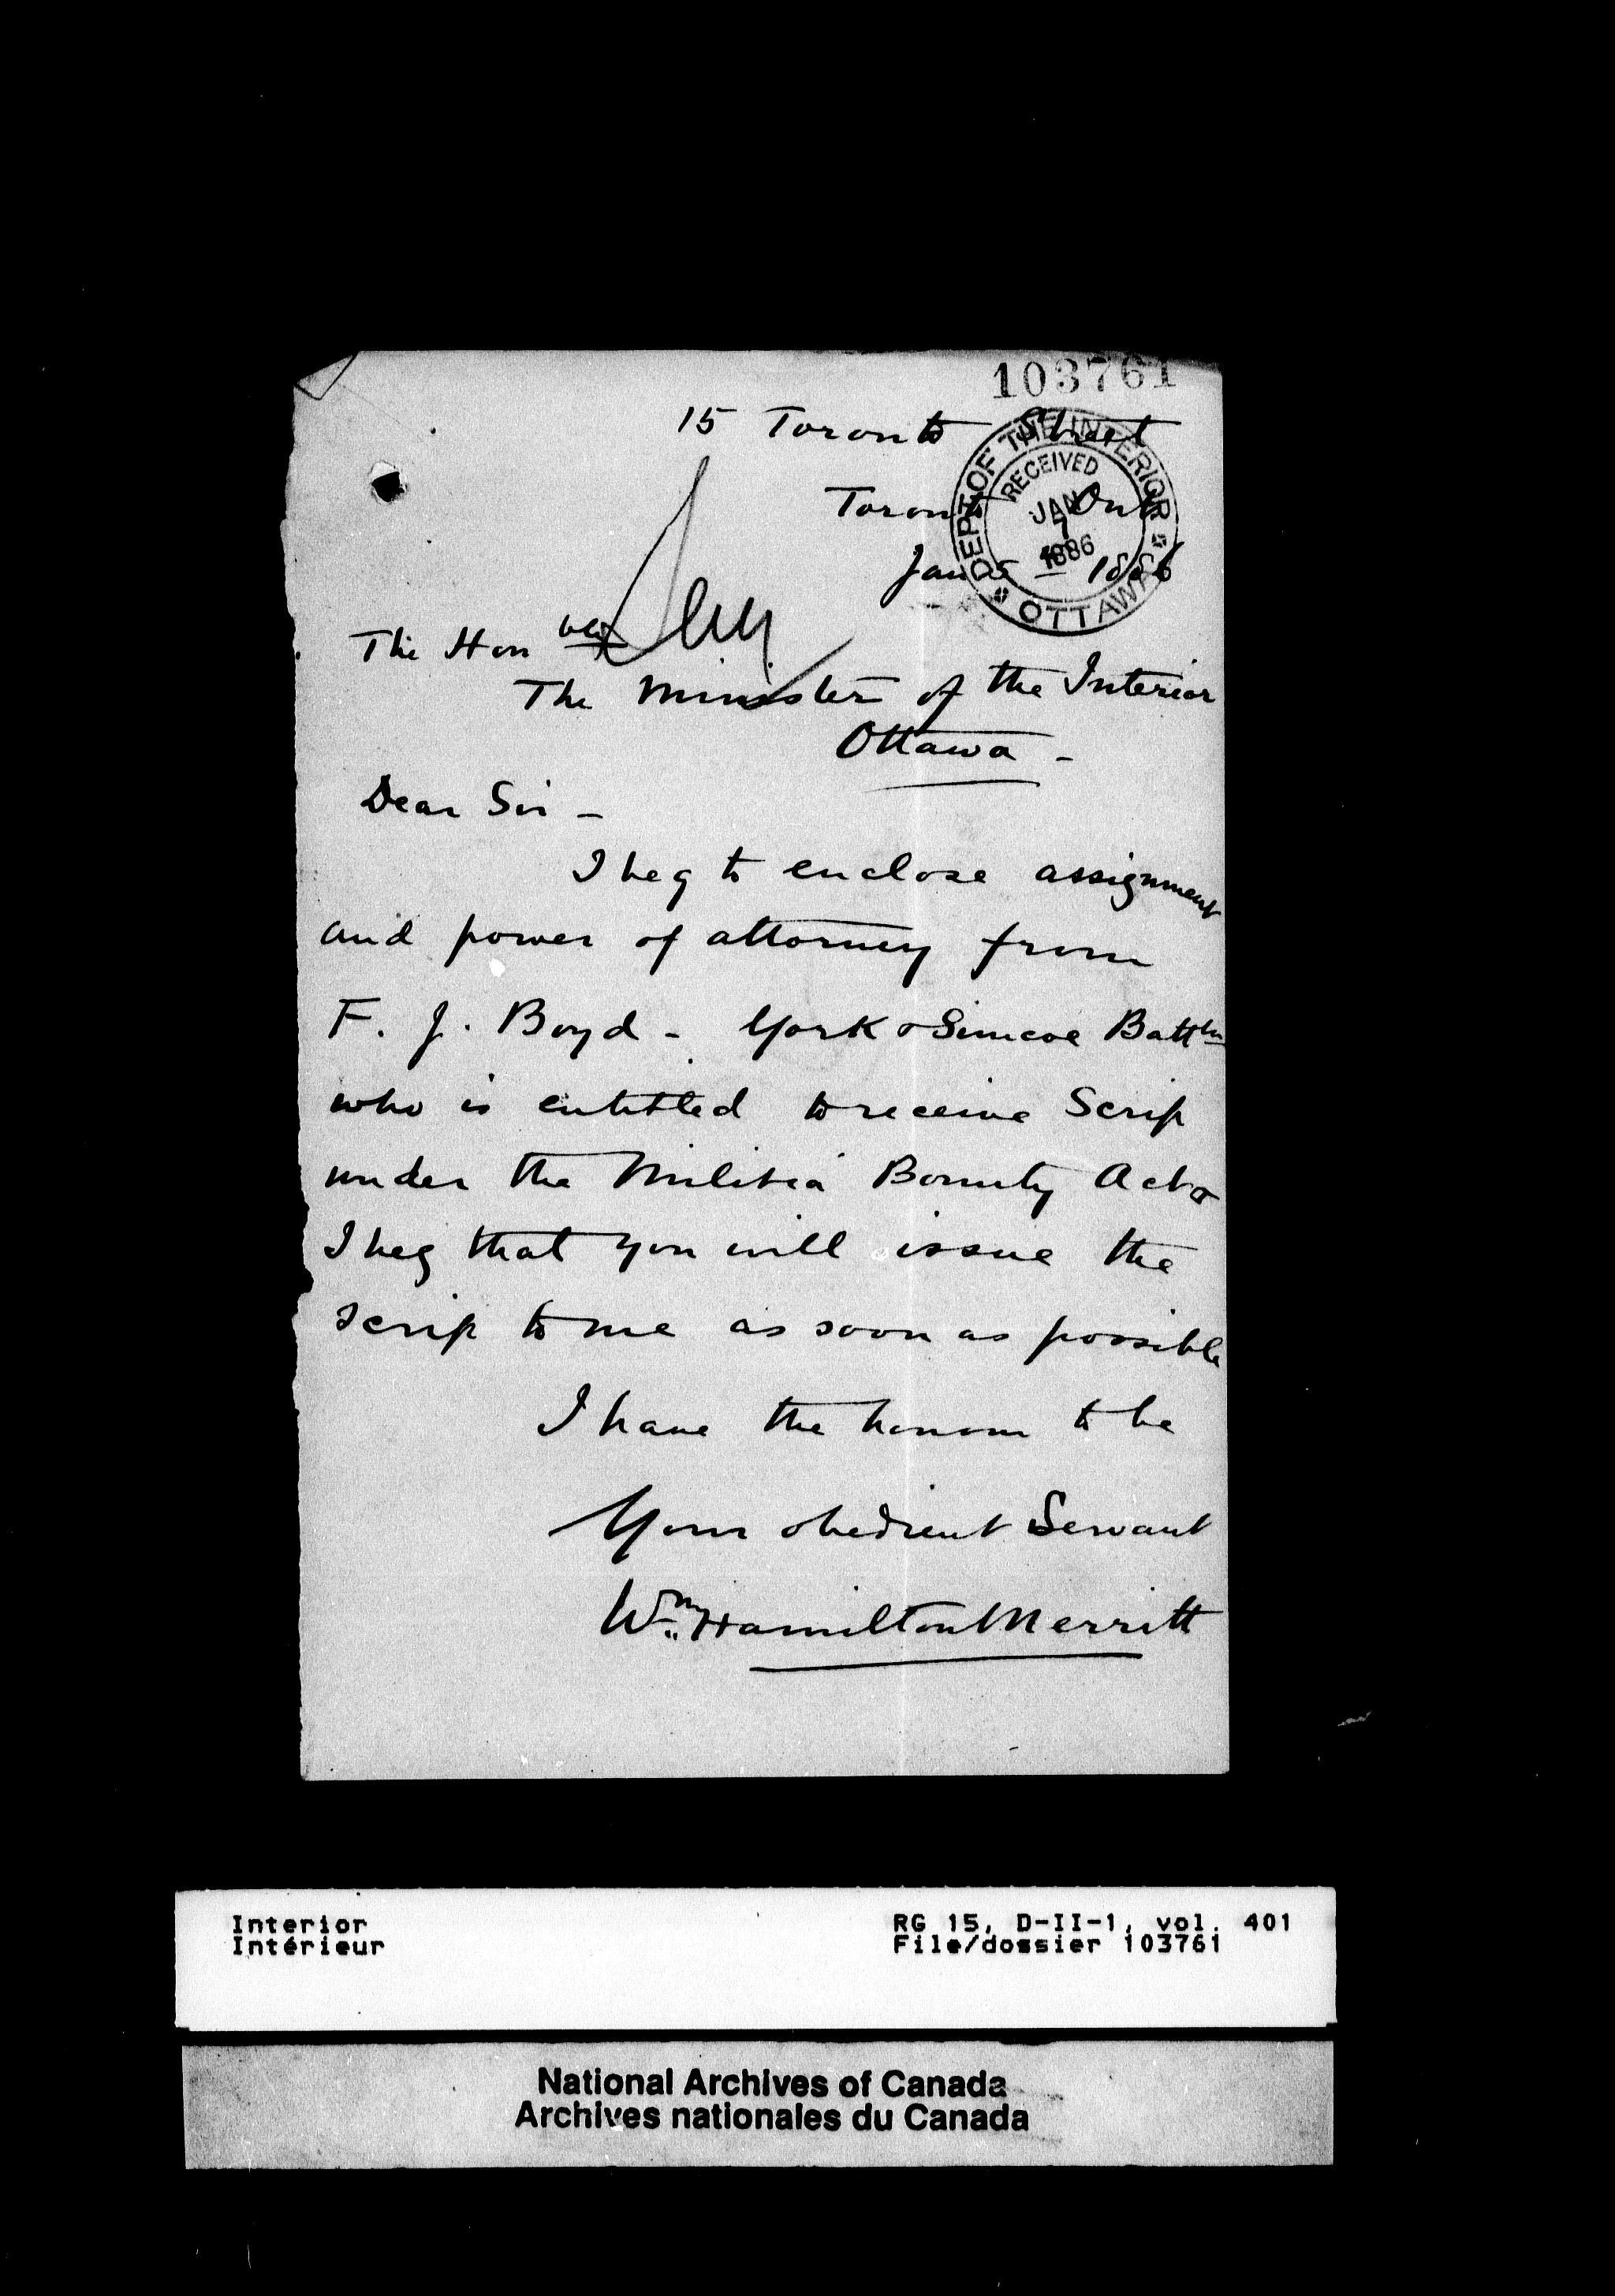 103761
15 Toronto Street
DEPT OF THE INTERIOR
RECEIVED
JAN 7
1886
OTTAWA
Toronto Ont
Jan 5 1886
The Honble
The Minister of the Interior
Ottawa -
Dear Sir -
I beg to enclose assignment
and power of attorney from
F. J. Boyd - York & Simcoe Battln
who is entitled to receive Scrip
under the Militia Bounty Act &
I beg that you will issue the
scrip to me as soon as possible
I have the honour to be
Your obedient Servant
Wm Hamilton Merritt
Interior
Intérieur
RG 15, D-II-1, vol. 401
File/dossier 103761
National Archives of Canada
Archives nationales du Canada